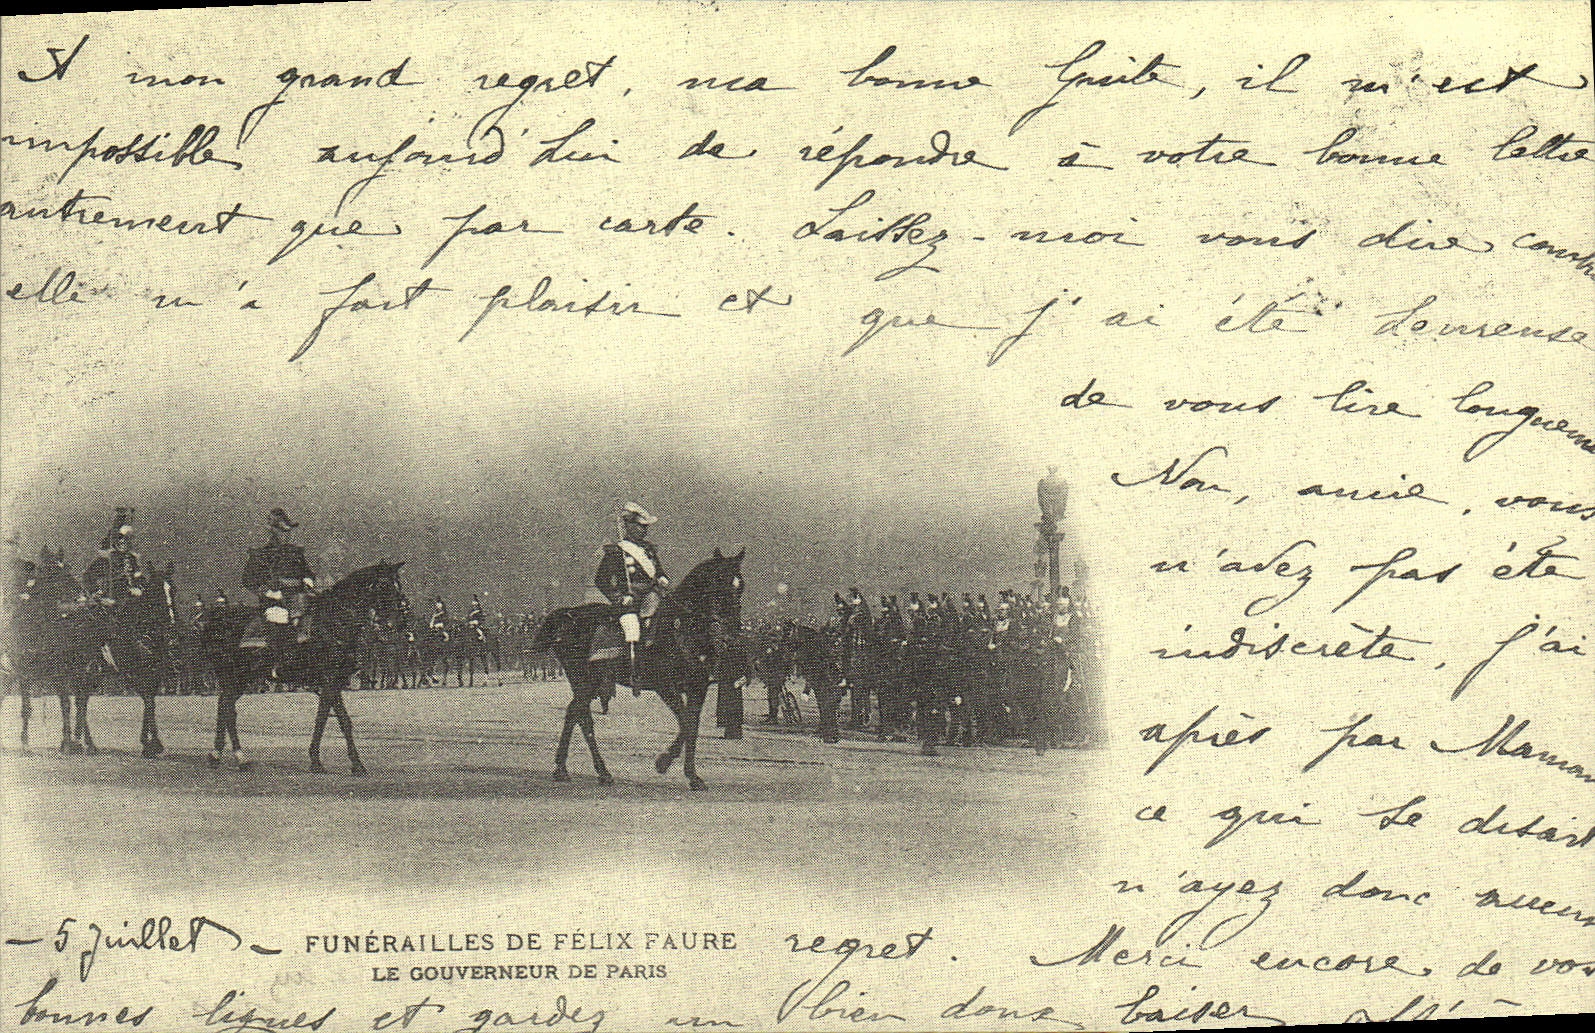 A mon grand regret, ma bonne Guite, il m'est
impossible aujourd'hui de répondre à votre bonne lettre
autrement que par carte. Laissez-moi vous dire
elle m'a fait plaisir et que j'ai été heureuse
de vous lire longuem
Non, amie, vous
n'avez pas été
indiscrète, j'ai
après par Maman
ce qui se disait
n'ayez donc aucun
- 5 Juillet - FUNÉRAILLES DE FÉLIX FAURE regret. Merci encore de vos
LE GOUVERNEUR DE PARIS
bonnes lignes et gardez un bien doux baiser